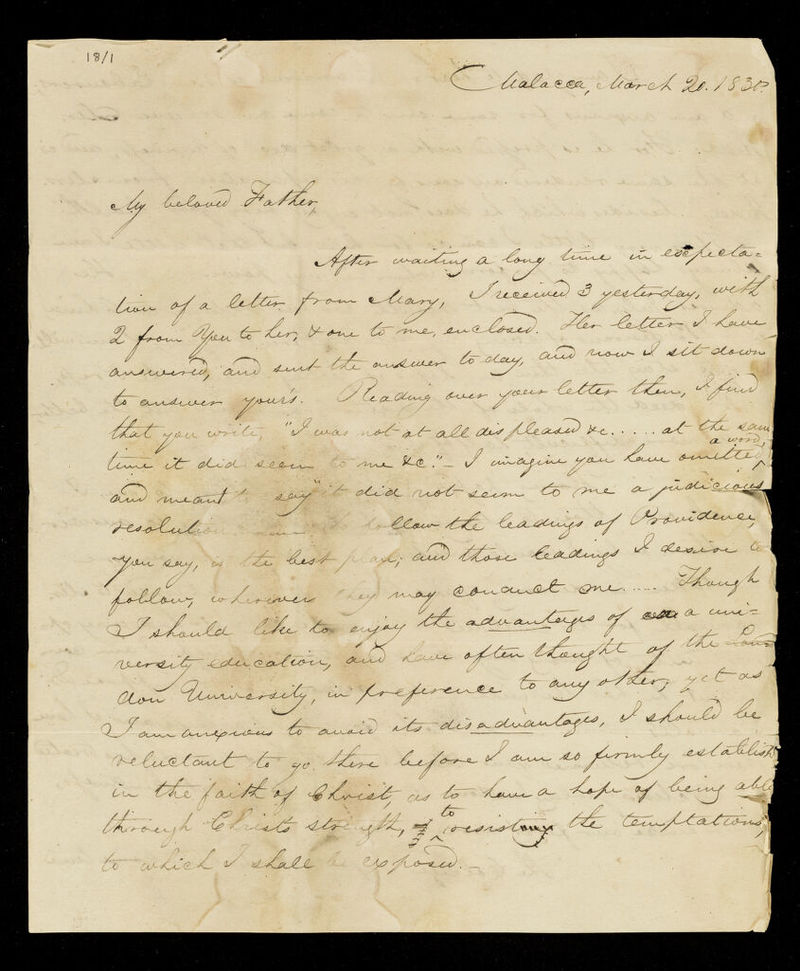 18/1
Malacca, March 20. 1830.
My beloved Father,
After waiting a long time in expecta=
tion of a letter from Mary, I received 3 yesterday, with
2 from You to her, & one to me, enclosed. Her letter I have
answered, and sent the answer to day, and now I sit down
to answer your's. Reading over your letter then, I find
that you write, "I was not at all displeased &c..... at the same
time it did seem to me &c." – I imagine you have omitted a word,
and meant to say "it did not seem to me a judicious
resolution follow the leadings of Providence,
you say, is the best plan; and those leadings I desire to
follow, wherever they may conduct me..... Though
I should like to enjoy the advantages of a uni=
versity education, and have often thought of the Lon=
don University, in preference to any other, yet as
I am anxious to avoid its disadvantages, I should be
reluctant to go there before I am so firmly establish'd
in the faith of Christ, as to have a hope of being able
through Christs strength, to resist the temptations,
to which I shall be exposed. –